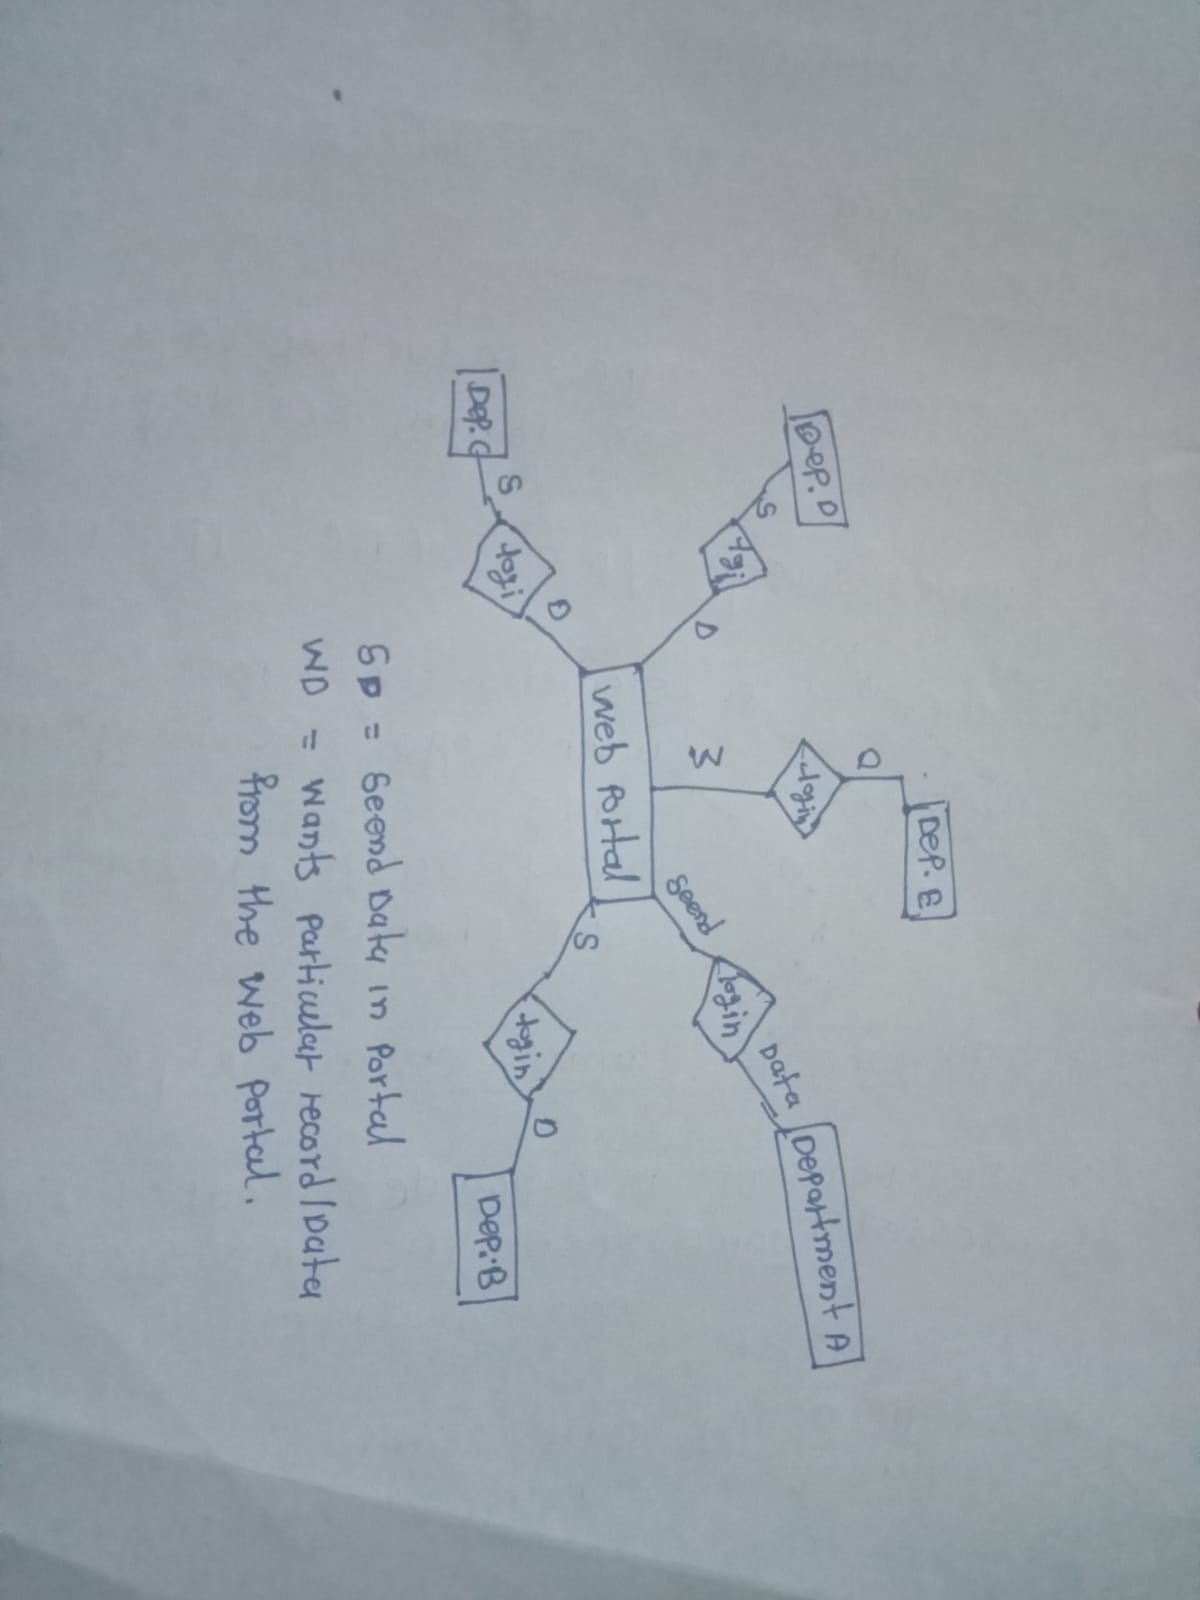 Dep. E
D
login
W
Department A
Data
login
Seend
Dep. D
S
logi
D
web Portal
S
login
D
Dep. B
D
logi
S
Dep. C
SD = Seend Data in Portal
WD = Wants particular record/Data
from the web Portal.